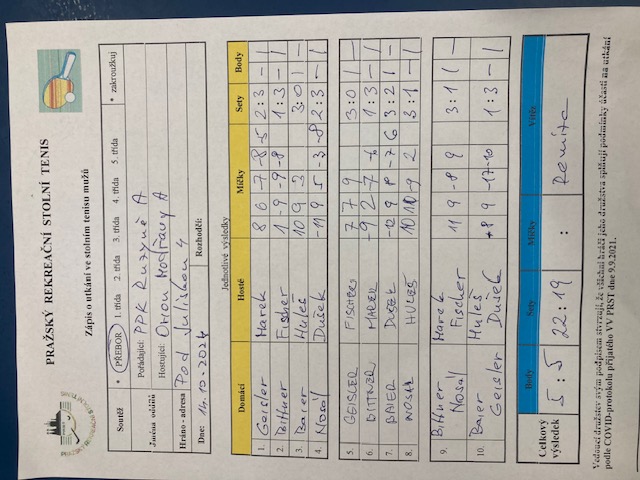 PRAŽSKÝ REKREAČNÍ STOLNÍ TENIS
Zápis o utkání ve stolním tenisu mužů
Soutěž * PŘEBOR 1. třída 2. třída 3. třída 4. třída 5. třída * zakroužkuj
Jména oddílů Pořádající: PDK Ruzyně A
Hostující: Orion Modřany A
Hráno - adresa Pod Juliskou 4
Dne: 14.10.2024 Rozhodčí:
Jednotlivé výsledky
Domácí Hosté Míčky Sety Body
1. Geisler Marek 8 6 -7 -8 -5 2:3 – 1
2. Bittner Fischer 1 -9 -9 -8 1:3 – 1
3. Baier Huleš 10 9 3 3:0 1 –
4. Nosál Dušek -11 9 5 -3 -8 2:3 – 1
5. GEISLER FISCHER 7 7 9 3:0 1 –
6. BITTNER MAREK -9 2 -7 -6 1:3 – 1
7. BAIER DUŠEK -12 9 8 -7 6 3:2 1 –
8. NOSÁL HULEŠ 10 10 -9 2 3:1 1 –
9. Bittner Marek 11 9 -8 9 3:1 1 –
Nosál Fischer
10. Baier Huleš -8 9 -17 -10 1:3 – 1
Geisler Dušek
Celkový výsledek Body Sety Míčky Vítěz
5:5 22:19 : Remíza
Vedoucí družstev svým podpisem stvrzují, že všichni hráči jeho družstva splňují podmínky účasti na utkání
podle COVID-protokolu přijatého VV PRST dne 9.9.2021.